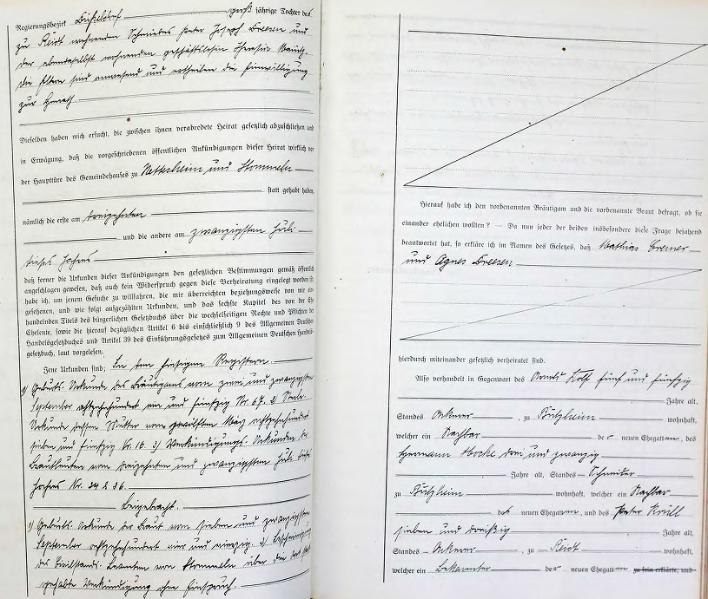 Regierungsbezirk Düsseldorf groß jährige Tochter des
zu Riedt wohnenden Schmiedes Peter Joseph Breesen und
der ebendaselbst wohnenden geschäftslosen Theresia
die Eltern sind anwesend und ertheilen die Einwilligung
zur Heirath
Dieselben haben mich ersucht, die zwischen ihnen verabredete Heirat gesetzlich abzuschließen und
in Erwägung, daß die vorgeschriebenen öffentlichen Ankündigungen dieser Heirat wirklich vor
der Haupttüre des Gemeindehauses zu Nettesheim und Stommeln
statt gehabt haben,
nämlich die erste am dreizehnten
und die andere am zwanzigsten Juli
dieses Jahres
daß ferner die Urkunden dieser Ankündigungen den gesetzlichen Bestimmungen gemäß öffentlich
angeschlagen gewesen, daß auch kein Widerspruch gegen diese Verheiratung eingelegt worden ist
habe ich, um jenem Gesuche zu willfahren, die mir überreichten beziehungsweise von mir ein
gesehenen, und wie folgt aufgezählten Urkunden, und das sechste Kapitel des von der Ehe
handelnden Titels des bürgerlichen Gesetzbuchs über die wechselseitigen Rechte und Pflichten der
Eheleute, sowie die hierauf bezüglichen Artikel 6 bis einschließlich 9 des Allgemeinen Deutschen
Handelsgesetzbuchs und Artikel 39 des Einführungsgesetzes zum Allgemeinen Deutschen Handels
gesetzbuch, laut vorgelesen.
Jene Urkunden sind: In den hiesigen Registern
1) Geburts Urkunde des Bräutigams vom zwei und zwanzigsten
September achtzehnhundert ein und fünfzig Nr. 67. 2. Sterbe
Urkunde dessen Mutter vom zwölften März achtzehnhundert
sieben und fünfzig Nr. 16. 3) Verkündigungs Urkunden der
Brautleuten vom dreizehnten und zwanzigsten Juli dieses
Jahres Nr. 34 & 36.
Beigebracht.
1) Geburts Urkunde der Braut vom sieben und zwanzigsten
September achtzehnhundert vier und 2) Bescheinigung
des Civilstands Beamten von Stommeln über die dort statt
gehabte Verkündigung ohne Einspruch.
Hierauf habe ich den vorbenannten Bräutigam und die vorbenannte Braut befragt, ob sie
einander ehelichen wollten? – Da nun jeder der beiden insbesondere diese Frage bejahend
beantwortet hat, so erkläre ich im Namen des Gesetzes, daß Mathias
und Agnes Breesen
hierdurch miteinander gesetzlich verheiratet sind.
Also verhandelt in Gegenwart des Kolf fünf und fünfzig
Jahre alt,
Standes Ackerer, zu Bützheim wohnhaft,
welcher ein Nachbar der neuen Ehegatten, des
Hermann drei und zwanzig
Jahre alt, Standes Schneider
zu Bützheim wohnhaft, welcher ein Nachbar
der neuen Ehegatten, und des Peter Krüll
sieben und dreißig Jahre alt,
Standes Ackerer, zu Riedt wohnhaft,
welcher ein Bekannter der neuen Ehegatten zu sein erklärte, und